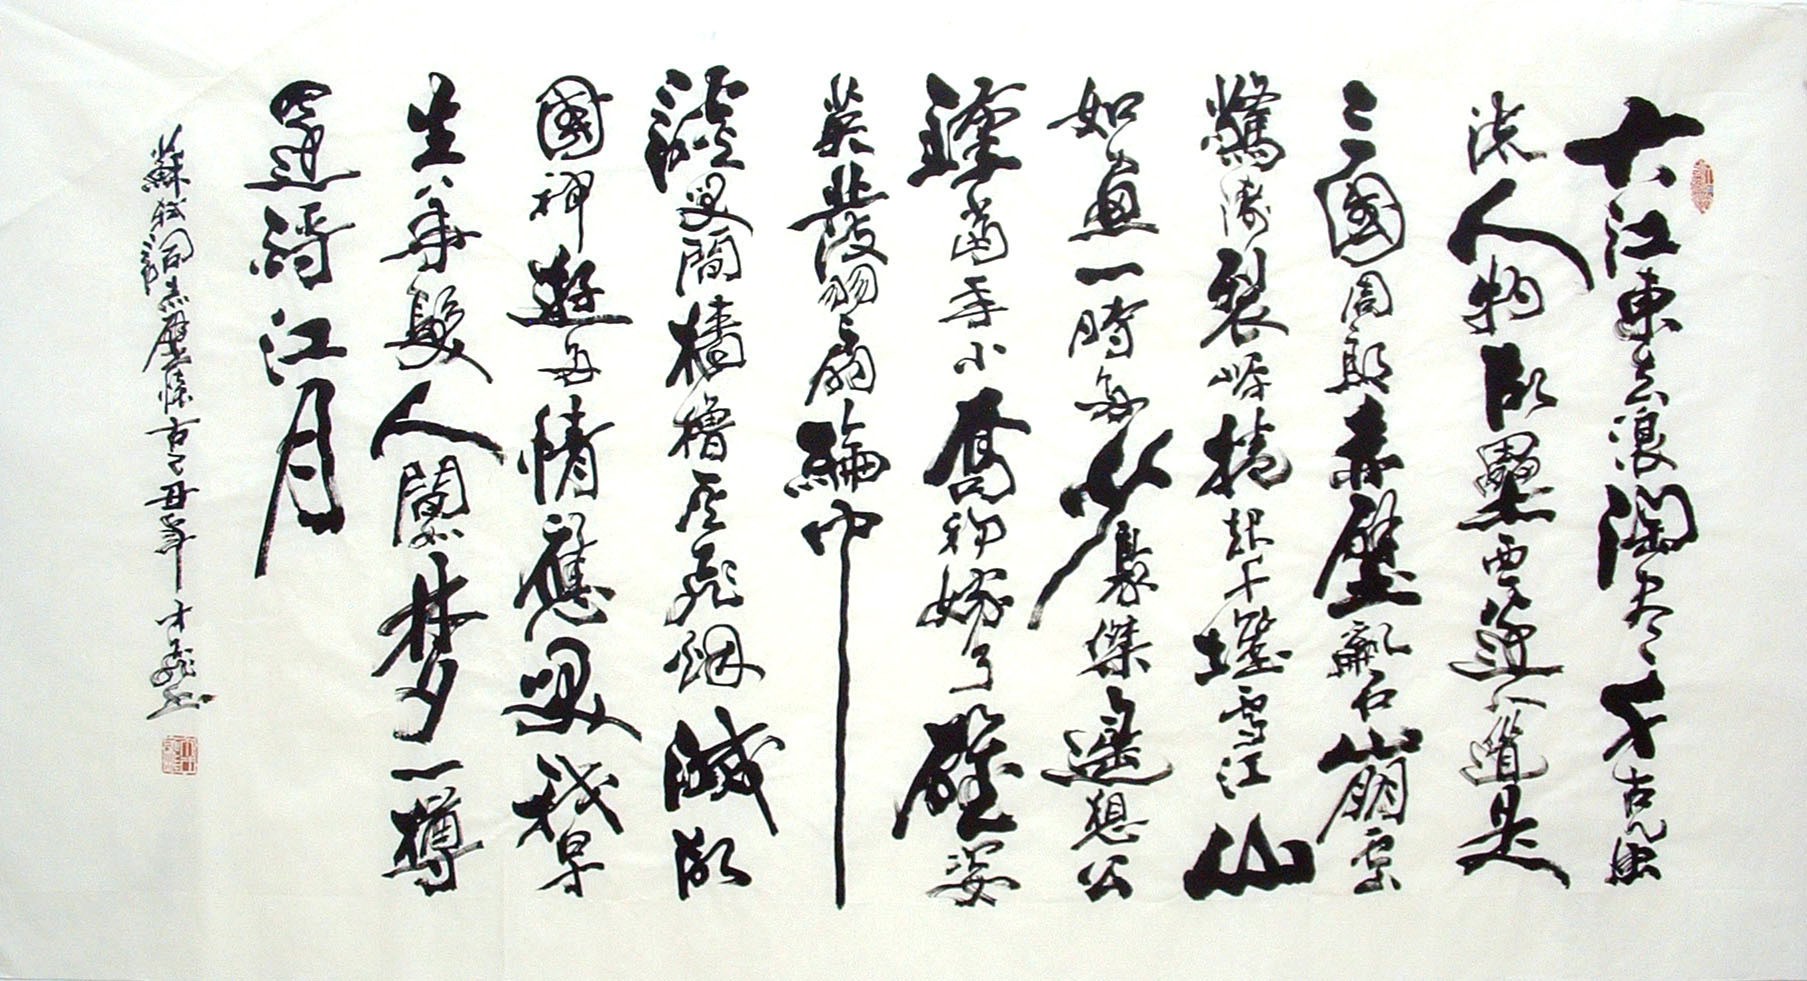 大江東去浪淘盡千古風
流人物故壘西邊人道是
三國周郎赤壁亂石崩雲
驚濤裂岸捲起千堆雪江山
如畫一時多少豪傑遙想公
瑾當年小喬初嫁了雄姿
英發羽扇綸巾
談笑間檣櫓灰飛烟滅故
國神遊多情應笑我早
生華髮人間如梦一樽
還酹江月
蘇軾詞赤壁懷古己丑年才書